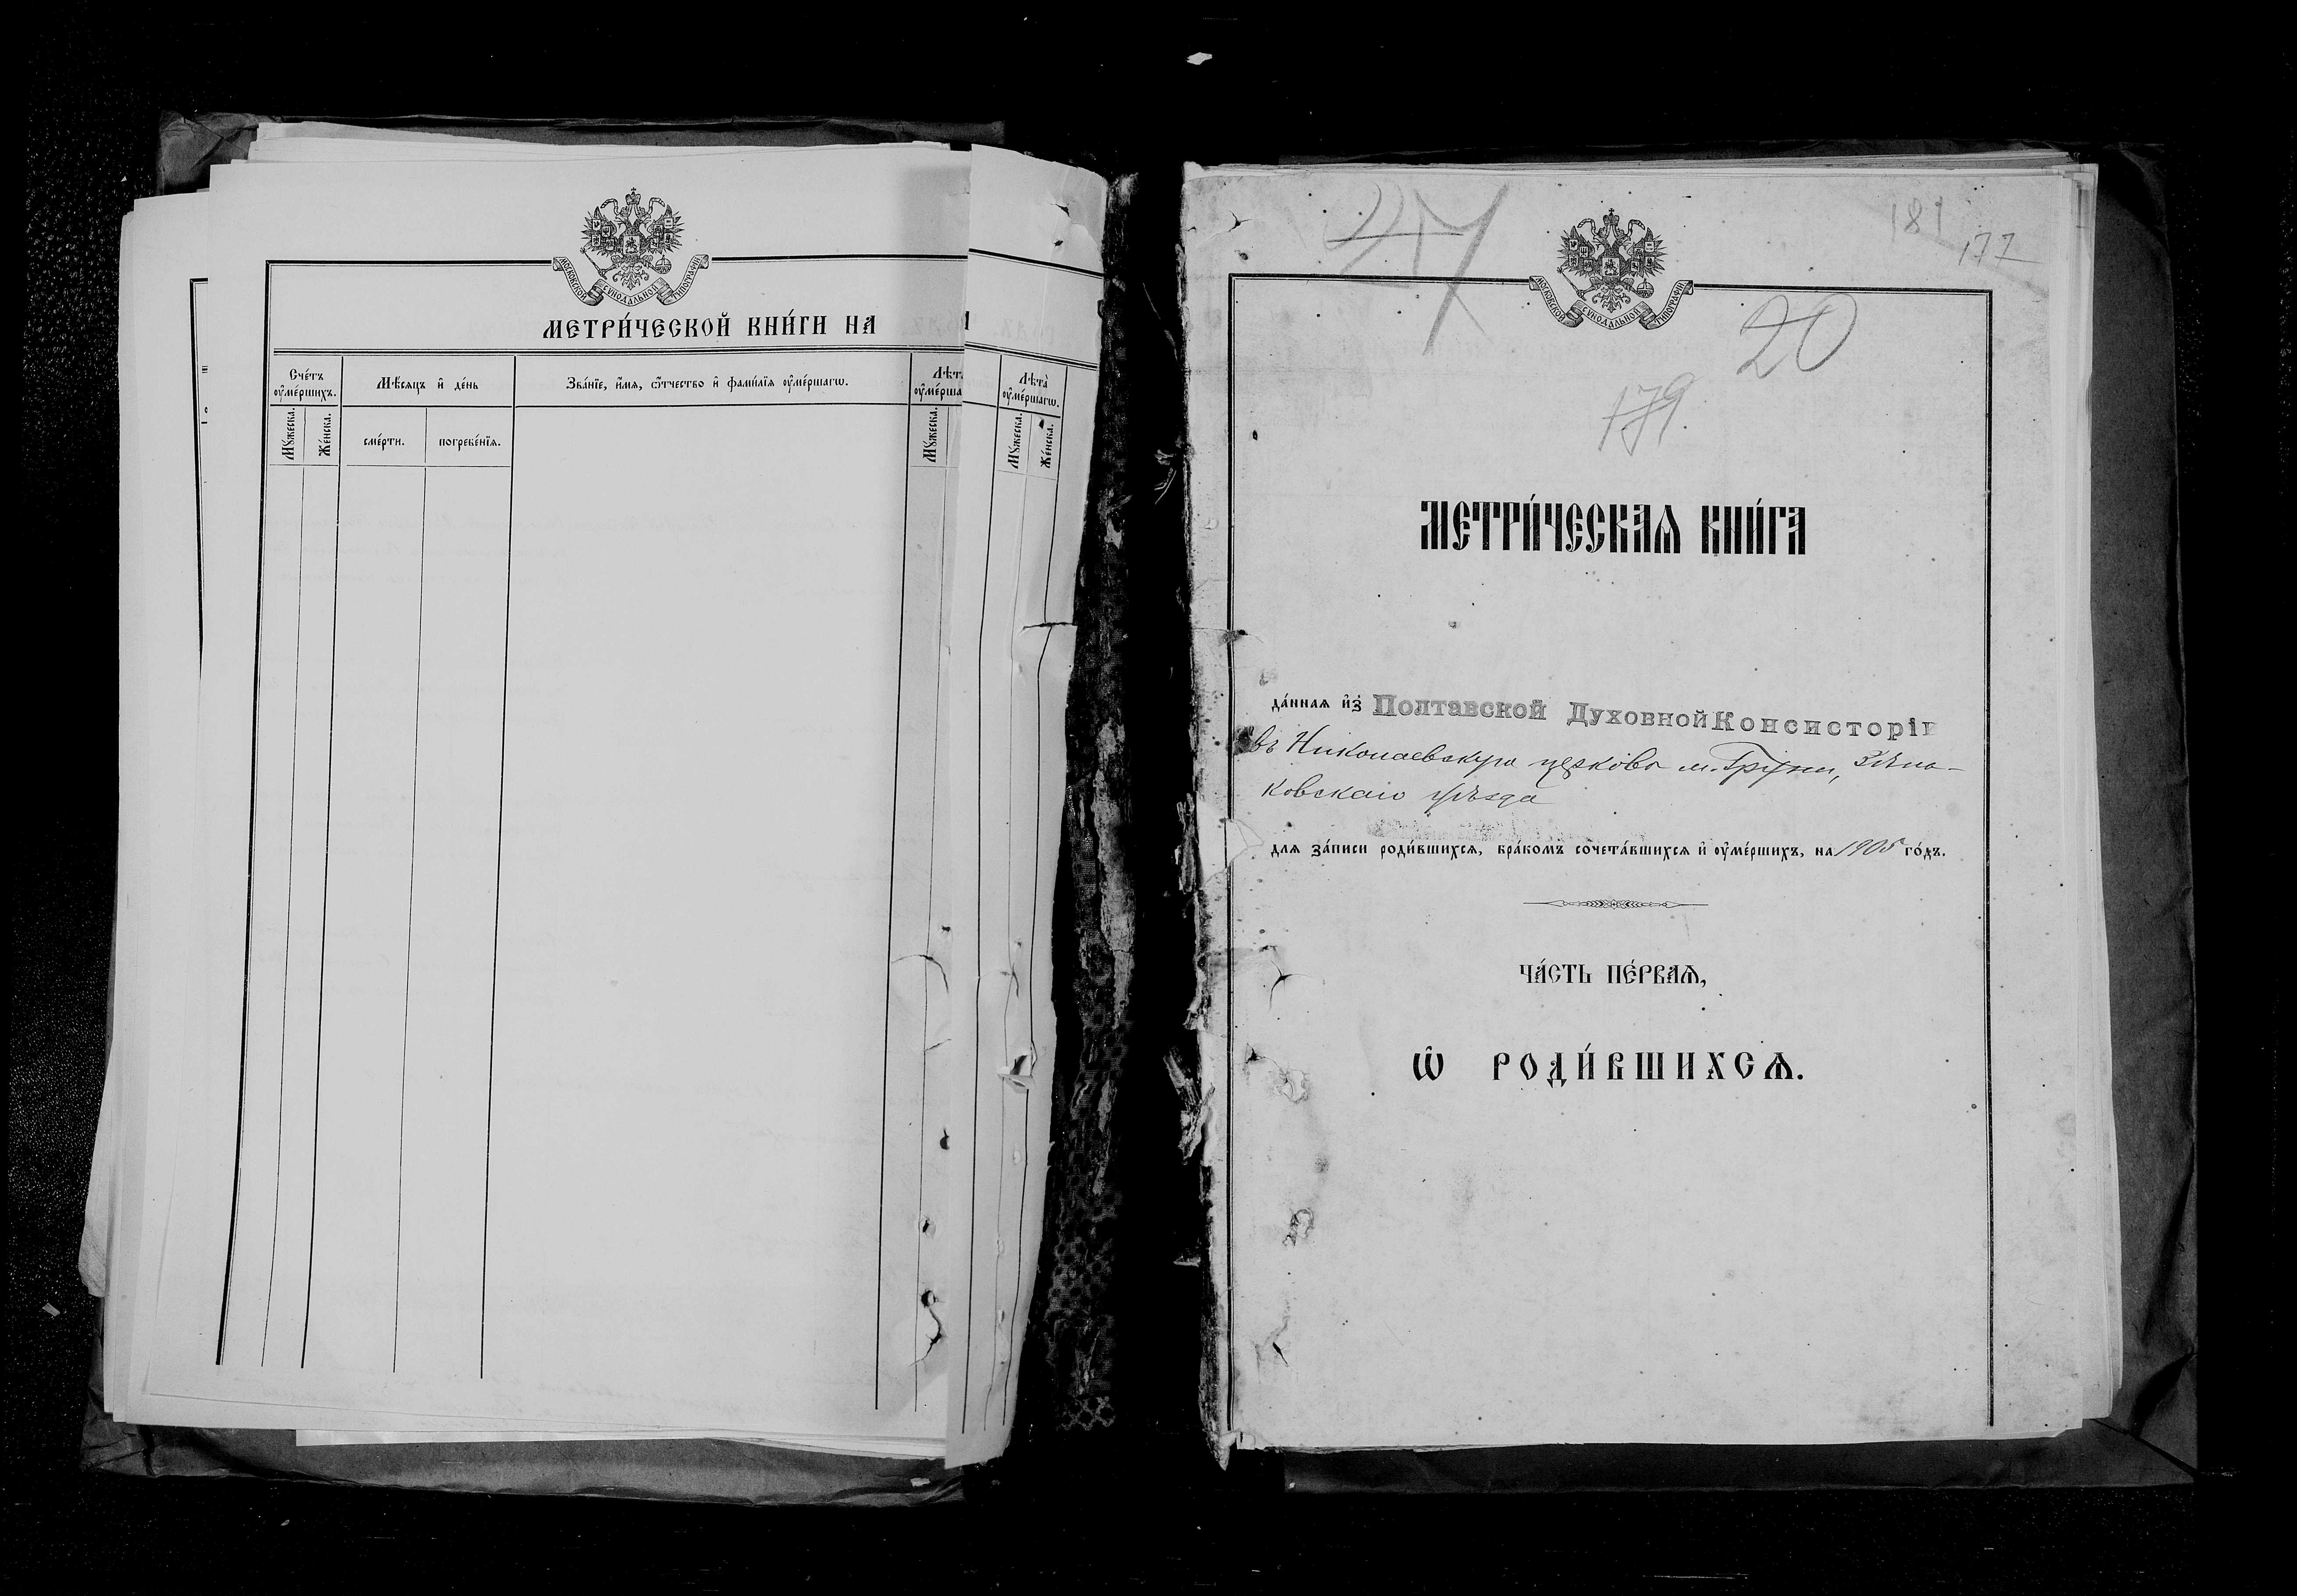 МОСКОВСКОЙ СѴНОДАЛЬНОЙ ТИПОГРАФІИ
МЕТРИ́ЧЕСКОЙ КНИ́ГИ НА
Сче́тъ ᲂу҆ме́ршихъ.
Мꙋ́жеска.
Же́нска.
Мѣ́сяцъ и҆ де́нь
сме́рти.
погребе́нїѧ.
Зва́нїе, и҆́мѧ, ѻ҆́тчество и҆ фами́лїѧ ᲂу҆ме́ршагѡ.
Лѣта
ᲂу҆ме́рша
Мꙋ́жеска.
Лѣ́та̀
ᲂу҆ме́ршагѡ.
Мꙋ́жеска.
Же́нска.
181
177
47
МОСКОВСКОЙ СѴНОДАЛЬНОЙ ТИПОГРАФІИ
20
179.
МЕТРИ́ЧЕСКАѦ КНИ́ГА
да́нная и҆з̾ Полтавской Духовной Консисторіи
въ Николаевскую церковь м. Груни, Зѣнь-
ковскаго уѣзда
для за́писи роди́вшихся, бра́комъ сочета́вшихся и҆ ᲂу҆ме́ршихъ, на 1905 го́дъ.
ЧА́СТЬ ПЕ́РВАѦ,
Ѽ РОДИ́ВШИХСѦ.